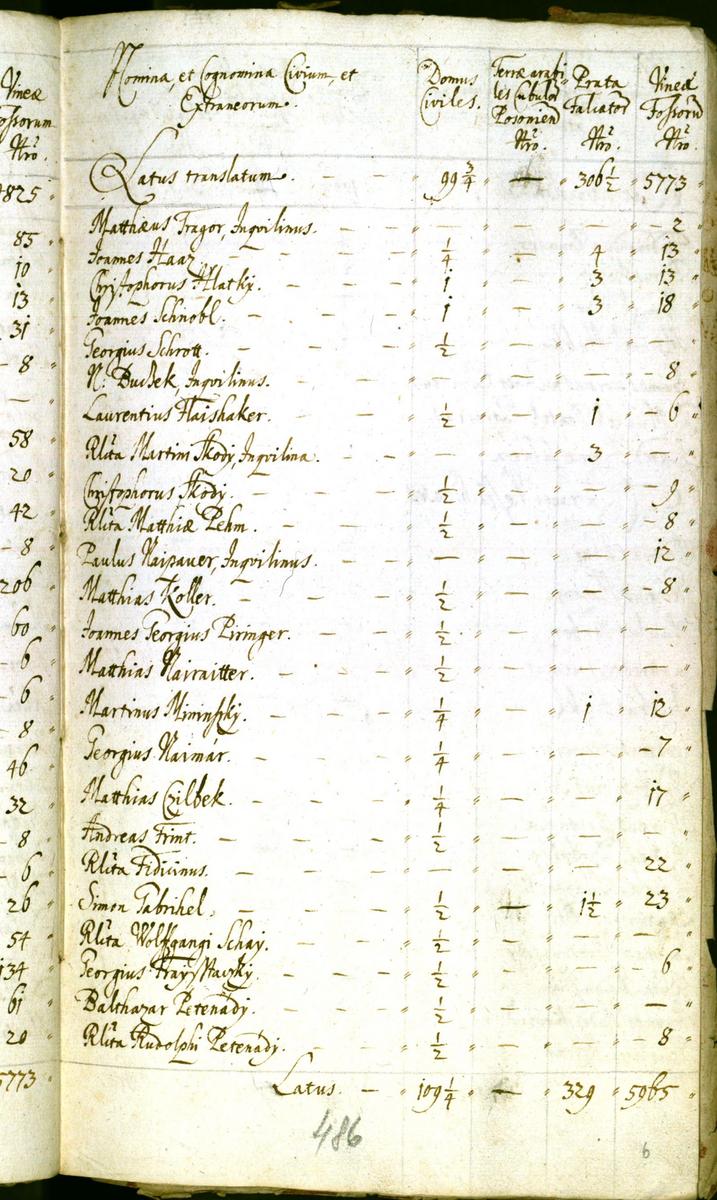 Vineæ
Fossorum
Nro.
4825
85
10
13
31
- 8
—
58
20
42
- 8
206
60
- 6
6
- 8
46
32
- 8
- 6
26
54
134
61
20
5773
Nomina, et Cognomina Civium, et Extraneorum.
Domus Civiles.
Terræ arabiles Cubulor Posonien Nro.
Prata Falcator Nro.
Vineæ Fossorū Nro.
Latus translatum. — — 99 3/4 — 306 1/2 5773
Matthæus Fragor, Inqvilinus. — — — — — - 2
Joannes Haaz. — — — 1/4 — 4 13
Christophorus Hlatky. — — 1 — 3 13
Joannes Schnobl. — — — 1 — 3 18
Georgius Schrott. — — — 1/2 — — —
N. Buchek, Inqvilinus. — — — — — - 8
Laurentius Flaishaker. — — 1/2 — 1 - 6
Rlita Martini Skody, Inqvilina. — — — — 3 —
Christophorus Skody. — — — 1/2 — — - 9
Rlita Matthiæ Pehm. — — — 1/2 — — - 8
Paulus Naipauer, Inqvilinus. — — — — — 12
Matthias Koller. — — — 1/2 — — - 8
Joannes Georgius Piringer. — — 1/2 — — —
Matthias Nairaitter. — — 1/2 — — —
Martinus Mininszky. — — — 1/4 — 1 12
Georgius Naimár. — — — 1/4 — — - 7
Matthias Czilbek. — — — 1/4 — — 17
Andreas Frint. — — — — 1/2 — — —
Rlita Fidicinus. — — — — — — 22
Simon Gabrihel. — — — 1/2 — 1 1/2 23
Rlita Wolffgangi Schay. — — 1/2 — — —
Georgius — — 1/2 — — - 6
Balthazar Petenády. — — — 1/2 — — —
Rlita Rudolphi Petenády. — — 1/2 — — - 8
Latus. — 109 1/4 — 329 5965
486
6